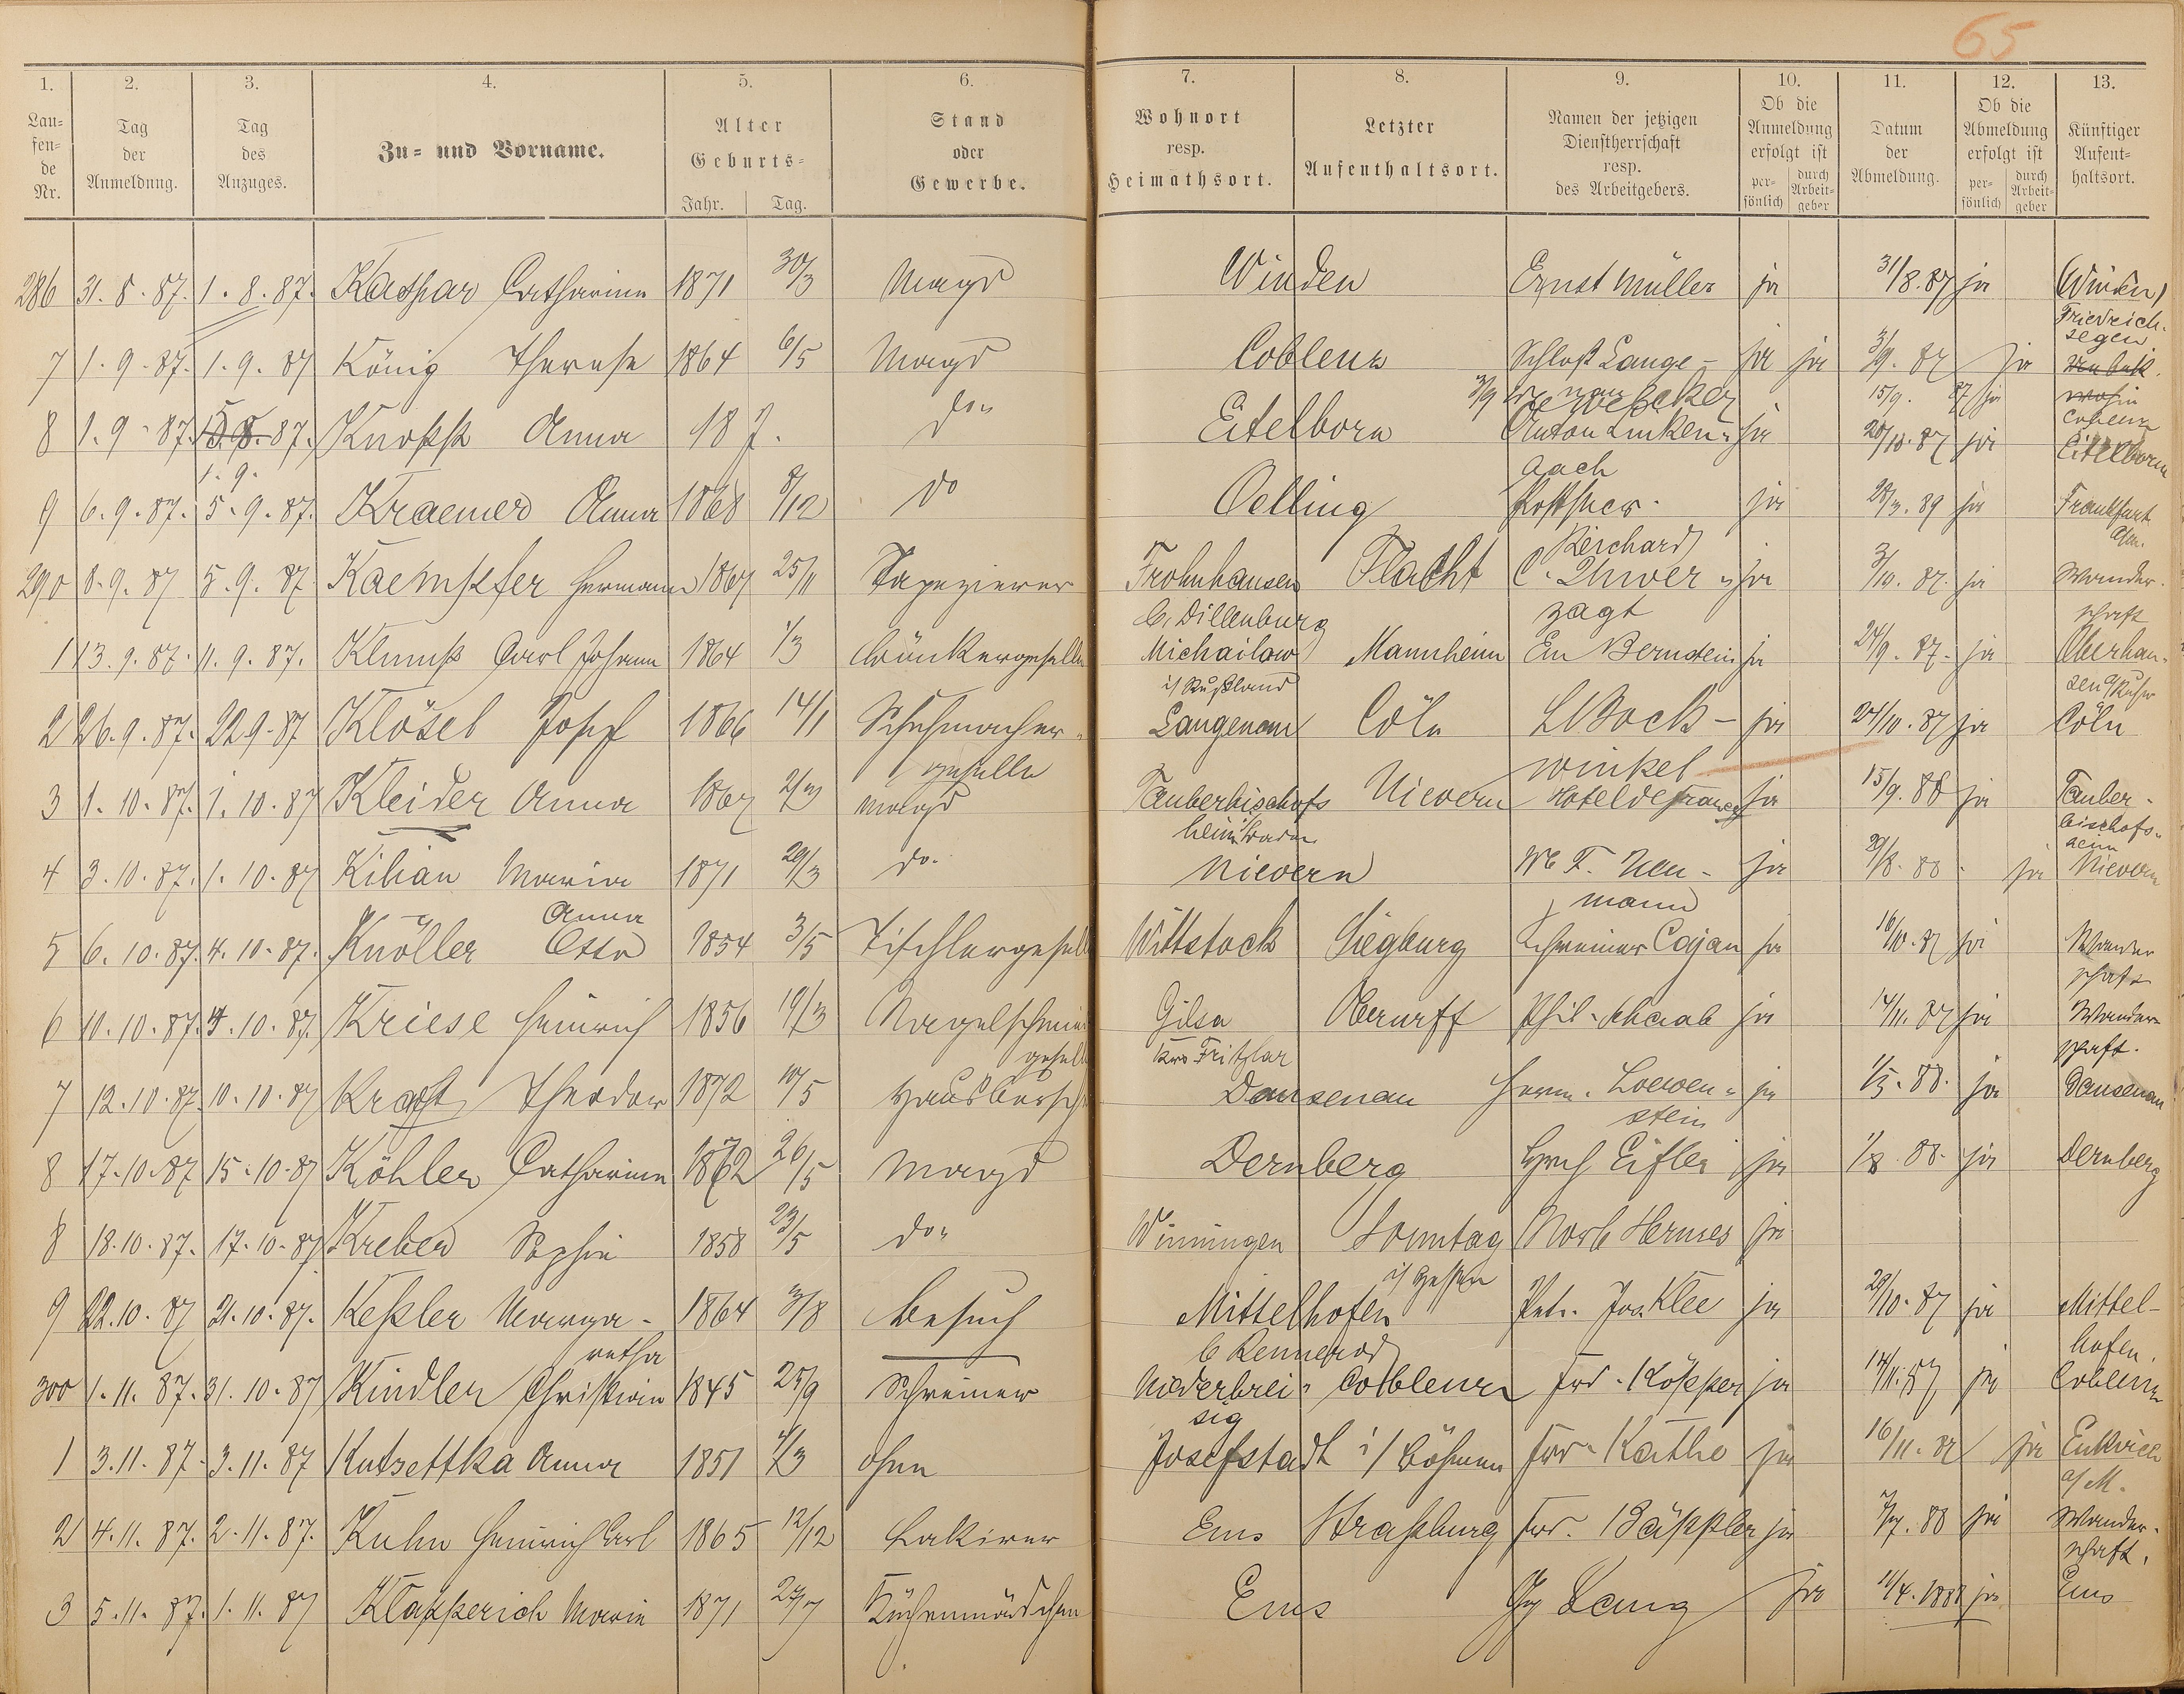 65
1. 2. 3. 4. 5. 6. 7. 8. 9. 10. 11. 12. 13.
Lau=
fen=
de
Nr.
Tag
der
Anmeldung.
Tag
des
Anzuges.
Zu= und Vorname.
Alter
Geburts=
Jahr. Tag.
Stand
oder
Gewerbe.
Wohnort
resp.
Heimathsort.
Letzter
Aufenthaltsort.
Namen der jetzigen
Dienstherrschaft
resp.
des Arbeitgebers.
Ob die
Anmeldung
erfolgt ist
per=
sönlich
durch
Arbeit=
geber
Datum
der
Abmeldung.
Ob die
Abmeldung
erfolgt ist
per=
sönlich
durch
Arbeit=
geber
Künftiger
Aufent=
haltsort.
286 31.8.87. 1.8.87. Kaspar Catharina 1871 30/3 Magd Winden Ernst Müller ja 31/8.87 ja Winden
Friedrich-
segen
7 1.9.87. 1.9.87 König Therese 1864 6/5 Magd Coblenz Schloß Lange- ja ja 3/9.87 ja
nau
15/9. 87 ja wohin
8 1.9.87. 87. Knopp Anna 18 7. do. Eitelborn Anton Linken- ja 20/10.87 ja Coblenz
Eitelborn
1.9. bach
9 6.9.87. 5.9.87. Kraemer Anna 1868 8/12 do Oelling Posthalter ja 28/3.89 ja Frankfurt
a/m.
Kirchard
290 8.9.87 5.9.87 Kaempfer Hermann 1867 25/11 Tapezierer Frohnhausen Flacht C. Schwer- ja 3/10.87. ja Wander-
b. Dillenburg zagt schaft
1 13.9.87. 11.9.87. Klump Carl Johann 1864 1/3 Michailow Mannheim Em Bernstein ja 24/9.87. ja Oberhau-
i/ Rußland sen a/Ruhr
2 26.9.87. 22.9.87 Klösel Josef 1866 14/1 Schuhmacher- Langenau Cöln L Bock- ja 24/10.87 ja Cöln
geselle winkel
3 1.10.87. 1.10.87 Kleider Anna 1867 2/3 Magd Tauberbischofs Nievern Hotel de France ja 15/9.88 ja Tauber-
heim Baden bischofs-
heim
4 3.10.87. 1.10.87 Kilian Maria 1871 29/3 do. Nievern We F. Neu- ja 30/8.88. ja Nievern
Anna mann
5 6.10.87. 4.10.87. Knöller Otto 1854 3/5 Tischlergesell Wittstock Siegburg Schreiner Cajan ja 16/10.87 ja Wander
schaft
6 10.10.87. 4.10.87. Kriese Heinrich 1856 19/3 Nagelschmied Gilsa Oberurff Phil. Schaab ja 14/11.87 ja Wander-
gesell Krs Fritzlar schaft.
7 12.10.87. 10.10.87 Kraft Theodor 1872 10/5 Hausbursch Dausenau Herm. Loewen- ja 1/5.88. ja Dausenau
stein
8 17.10.87 15.10.87 Köhler Catharina 1872 26/5 Magd Dernberg Hrch Eifler ja 1/8.88. ja Dernberg
8 18.10.87. 17.10.87 Kreber Sophie 1858 23/5 do. Winningen Sonntag Norb Hermes ja
i/ Hessen
9 22.10.87 21.10.87. Keßler Marga- 1864 3/8 Besuch Mittelhofen Petr. Jos. Klee ja 29/10.87 ja Mittel-
retha b Rennerod hofen.
300 1.11.87. 31.10.87 Kindler Christian 1845 25/9 Schreiner Niederbrei- Coblenz Frd. Köpper ja 14/11.87 ja Coblenz
sig
1 3.11.87. 3.11.87 Kutzettka Anna 1851 4/3 ohne Josefstadt i/ Böhmen Frd. Kathe ja 16/11.87 ja
a/M.
2 4.11.87. 2.11.87. Kuhn Heinrich Carl 1865 12/12 Lakirer Ems Straßburg Frd. Bäppler ja 7/7.88 ja Wander-
schaft.
3 5.11.87. 1.11.87 Klapperich Marie 1871 27/7 Küchenmädchen Ems Gg Lang ja 11/4.1888 ja Ems